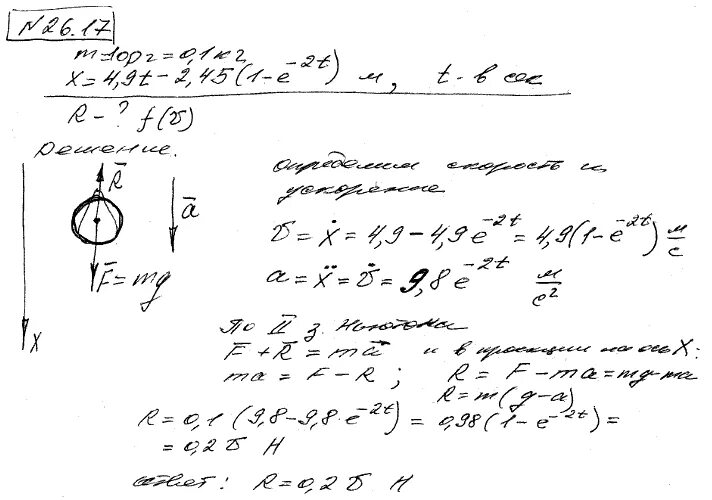 N 26.17
m=10рг=0,1кг
x=4,9t-2,45(1-e^{-2t}) м, t-в сек
R-? f(v)
Решение.
R̄
ā
F̄=mg
X
определим скорость и
ускорение
v = ẋ = 4,9-4,9e^{-2t} = 4,9(1-e^{-2t}) м/с
a = ẍ = v̇ = 9,8e^{-2t} м/с²
По II з. Ньютона
F̄+R̄ = mā и в проекции на ось X:
ma = F-R ; R = F-ma=mg-ma
R=m(g-a)
R=0,1(9,8-9,8·e^{-2t}) = 0,98(1-e^{-2t})=
=0,2v Н
ответ: R=0,2v Н